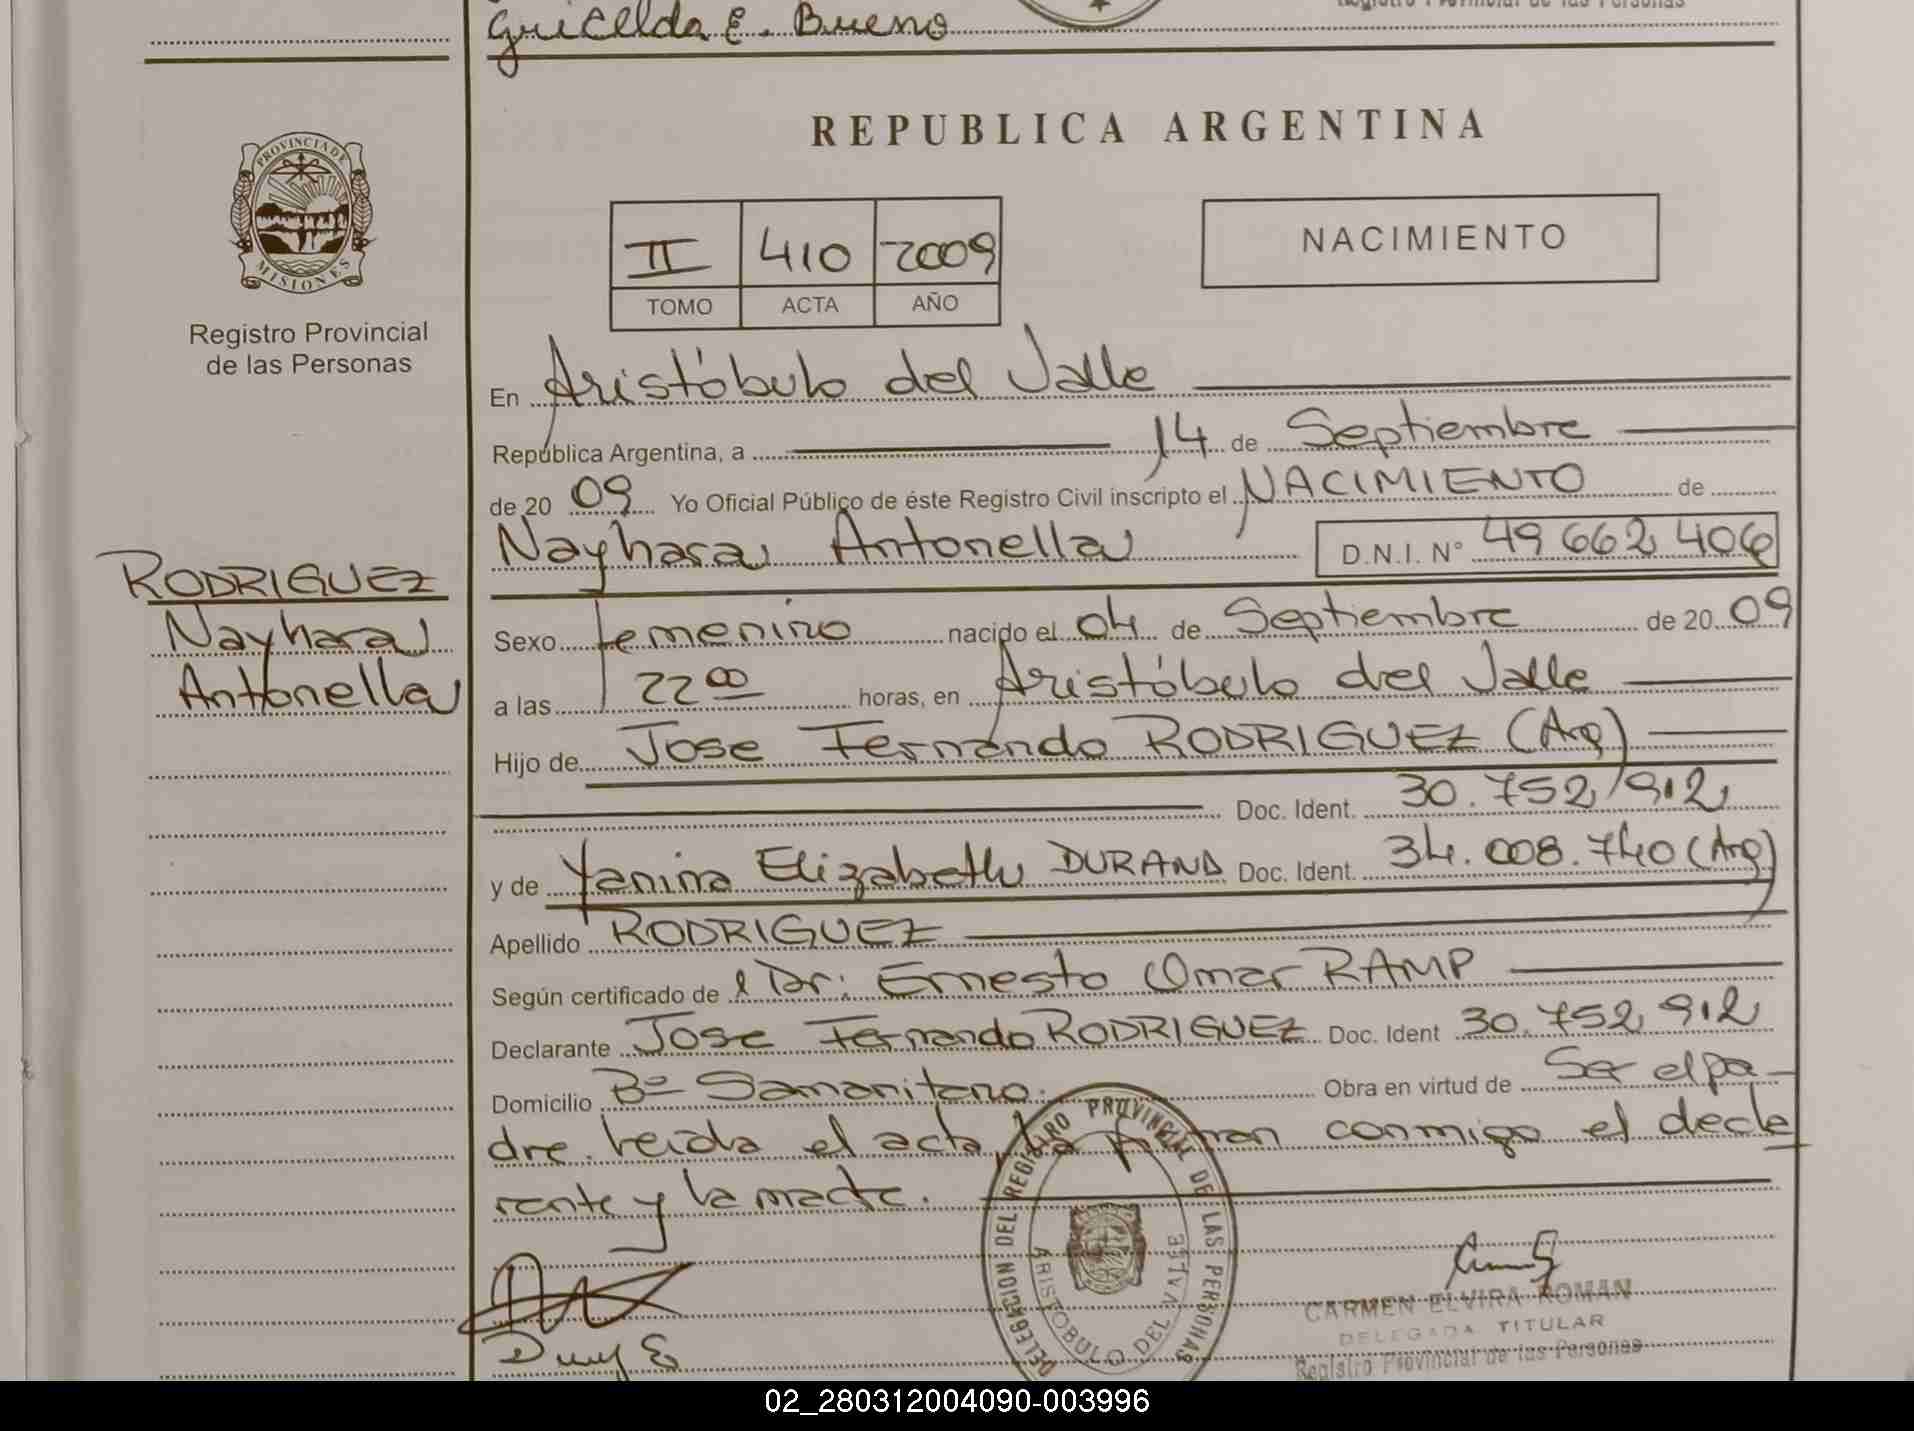 Gricelda E. Bueno
Registro Provincial de las Personas
REPUBLICA ARGENTINA
PROVINCIA DE
MISIONES
Registro Provincial
de las Personas
II 410 2009
TOMO ACTA AÑO
NACIMIENTO
En Aristóbulo del Valle
República Argentina, a 14 de Septiembre
de 20 09 Yo Oficial Público de éste Registro Civil inscripto el NACIMIENTO de
Nayhara Antonella D.N.I. N° 49 662 406
RODRIGUEZ
Nayhara
Antonella
Sexo femenino nacido el 04 de Septiembre de 20 09
a las 22 00 horas, en Aristóbulo del Valle
Hijo de Jose Fernando RODRIGUEZ (Arg)
Doc. Ident. 30.752.912
y de Yanina Elizabeth DURAND Doc. Ident. 34.008.740 (Arg)
Apellido RODRIGUEZ
Según certificado de l Dr: Ernesto Omar RAMP
Declarante Jose Fernando RODRIGUEZ Doc. Ident 30.752.912
Domicilio B° Samaritano. Obra en virtud de Ser el pa-
dre. Leida el acta, la firman conmigo el decla
rante y la madre.
DELEGACION DEL REGISTRO PROVINCIAL DE LAS PERSONAS
ARISTOBULO DEL VALLE
CARMEN ELVIRA ROMAN
DELEGADA TITULAR
Registro Provincial de las Personas
02_280312004090-003996